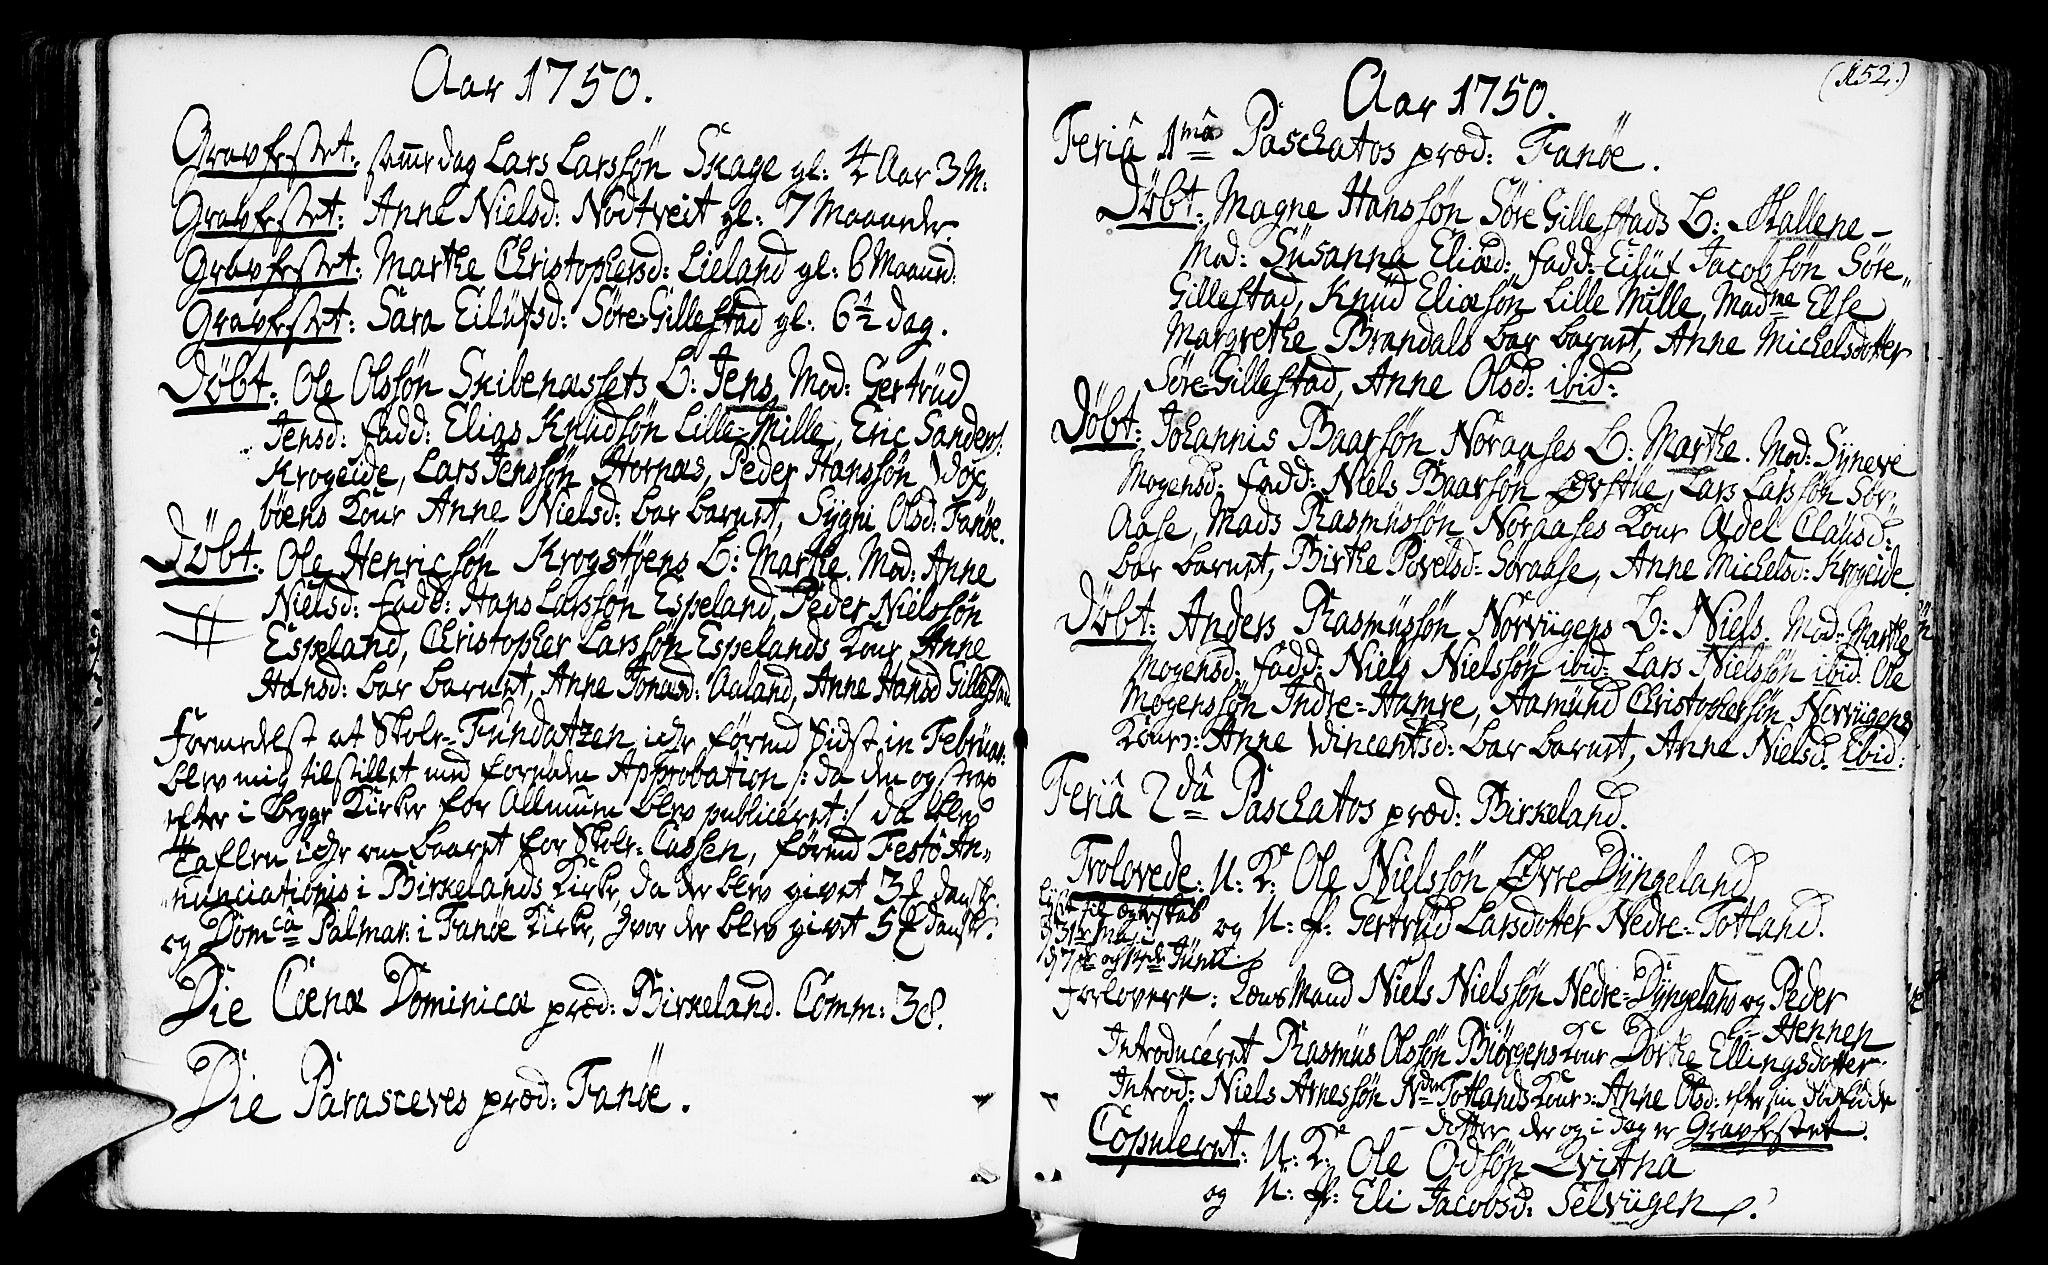 Aar 1750.
Gravfestet: samme dag Lars Larssøn Skage gl: 4 Aar 3 M:
Gravfestet: Anne Nielsd: Nødtveit gl: 7 Maaneder.
Gravfestet: Marthe Christophersd: Lieland gl: 6 Maaned:
Gravfestet: Sara Eilüfsd: Søre-Gillestad gl: 6½ dag.
Døbt: Ole Olssøn Skibenæssets B: Jens, Mod: Gertrüd
Jensd: fadd: Elias Knudsøn Lille-Mille, Eric Sanders:
Krogeide, Lars Jenssøn Hornæs, Peder Hanssøn
bøens Kone Anne Nielsd: bar barnet, Sygni Olsd: Fanøe.
Døbt: Ole Henricsøn Krogstøens B: Marthe. Mod: Anne
Nielsd: fadd: Hans Larssøn Espeland, Peder Nielssøn
Espeland, Christopher Larssøn Espelands Kone, Anne
Hansd: bar barnet, Anne Jonasd: Aaland, Anne Hansd Gillestad
Formedelst at Skole-Fundatzen icke førend sidst in Februar:
blev mig tilstillet med fornøden Approbation /: da den og strax
efter i begge Kirker for Allmuen blev publiceret :/ da blev
Taflen icke om baaret for Skole-Cassen, førend Festô An-
nunciationis i Birkelands Kirke, da der blev givet 3 ß danske.
og Domcâ Palmar: i Fanøe Kirke, hvor der blev givet 5 ß danske.
Die Cœnæ Dominicæ præd: Birkeland. Comm: 38.
Die Parasceves præd: Fanøe.
(152.)
Aar 1750.
Feriâ 1mâ Paschatos præd: Fanöe.
Døbt: Magne Hanssøn Søre Gillestads B: Mallene-
Mod: Susanna Eliæd: fadd: Eilüf Jacobsøn Søre-
Gillestad, Knüd Eliæsøn Lille Mille, Madme Else
Margrethe Brandals bar barnet, Anne Michelsdotter
Søre-Gillestad, Anne Olsd: ibid:
Døbt: Johannis Baarsøn Noraases B: Marthe. Mod: Syneve
Mogensd: fadd: Niels Baarsøn Øvstüe, Lars Larssøn Sør-
Aase, Mads Rasmüssøn Noraases Kone Adel Claüsd:
bar barnet, Birthe Povelsd: Soraase, Anne Michelsd: Krogeide.
Døbt: Anders Rasmüssøn Norvügens B: Niels. Mod: Marthe
Mogensd: fadd: Niels Nielssøn ibid: Lars Nielssøn ibid: Ole
Mogenssøn Indre-Hamre, Aamünd Christophersøn Norvügens
Kone: Anne Wincentsd: bar barnet, Anne Nielsd. ibid:
Feriâ 2dâ Paschatos præd: Birkeland.
Trolovede: U: K: Ole Nielssøn Øvre Dyngeland
og U: P: Gertrüd Larsdotter Nedre-Totland.
Forlovere: Lens Mand Niels Nielssøn Nedre-Dyngeland og Peder
Hennen
Introduceret Rasmüs Olssøn Biørgens Kone Dorthe Ellingsdotter
Introd: Niels Arnessøn Ndre Totlands Kone: Anne Olsd: efter sin dødfødde
dotter der og i dag er Gravfestet.
Copuleret: U: K: Ole Odsøn Qvitna
og U: P: Eli Jacobsd: Selvügen.